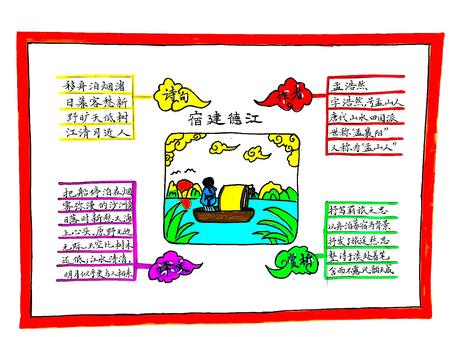 宿建德江
诗句
移舟泊烟渚
日暮客愁新
野旷天低树
江清月近人
作者
孟浩然
字浩然,号孟山人
唐代山水田园派
世称“孟襄阳”
又称为“孟山人”
译文
把船停泊在烟
雾弥漫的沙洲旁
日暮时新愁又涌
上心头,原野无边
无际,天空比树木
还低,江水清清,
明月似乎更与人相亲
赏析
抒写羁旅之思
以舟泊暮宿为背景
抒发了旅途愁思
整诗于淡处着笔
含而不露风韵天成